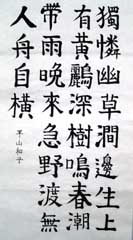 獨憐幽草澗邊生上
有黃鸝深樹鳴春潮
帶雨晚來急野渡無
人舟自橫
山和子